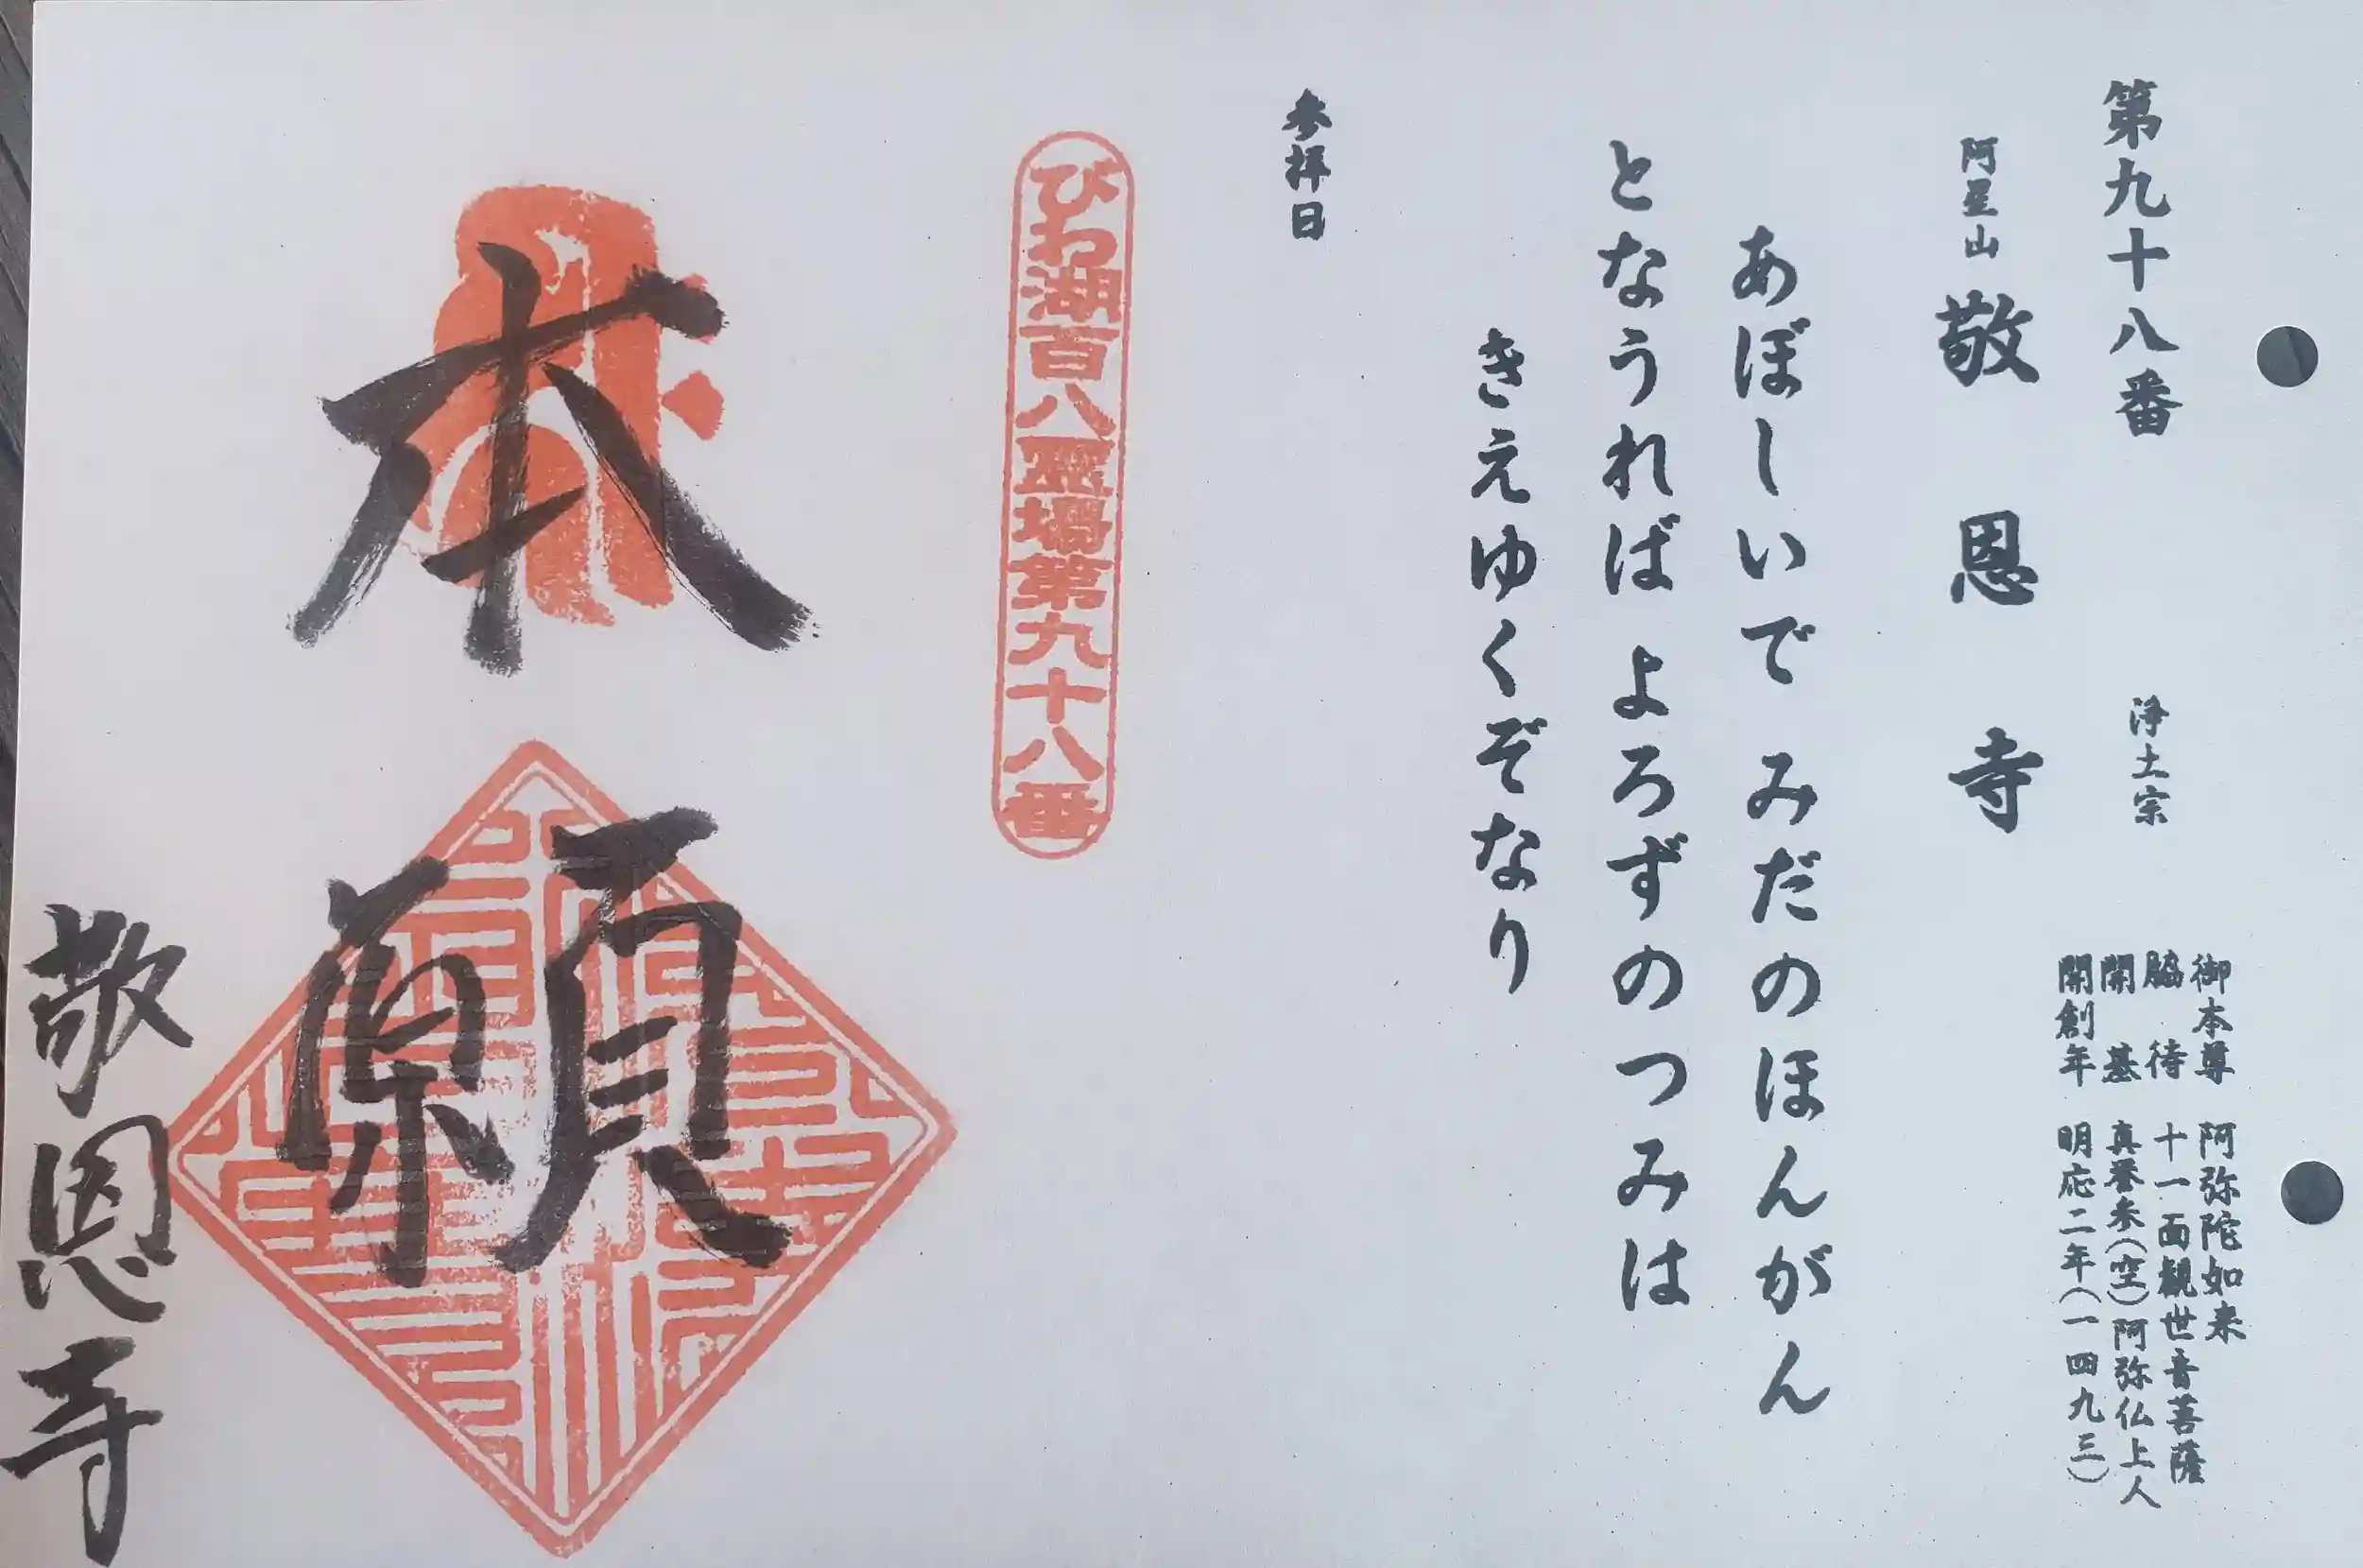 第九十八番 浄土宗
御本尊 阿弥陀如来
脇待 十一面観世音菩薩
開基 真誉米(空)阿弥仏上人
開創年 明応二年(一四九三)
阿星山 敬恩寺
あぼしいで みだのほんがん
となうれば よろずのつみは
きえゆくぞなり
参拝日
びわ湖百八霊場第九十八番
本願
敬恩寺